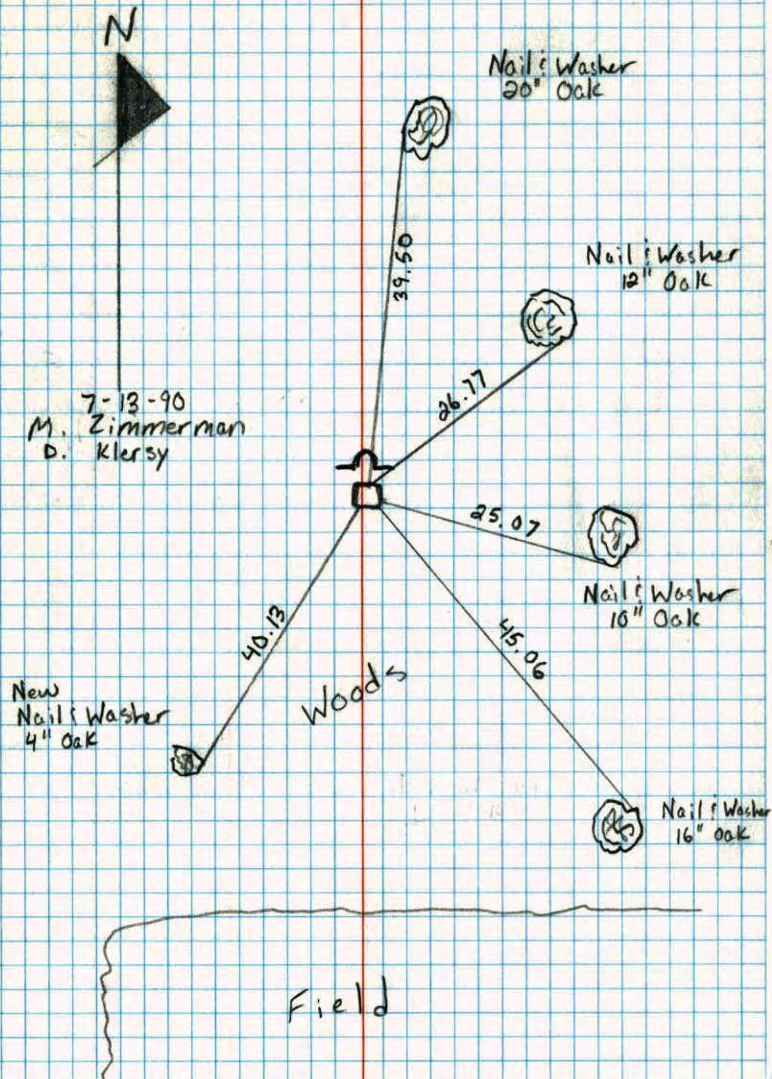 N
Nail & Washer
20" Oak
39.50
Nail & Washer
12" Oak
26.77
7-13-90
M. Zimmerman
D. Klersy
25.07
Nail & Washer
10" Oak
40.13
45.06
Woods
New
Nail & Washer
4" Oak
Nail & Washer
16" Oak
Field